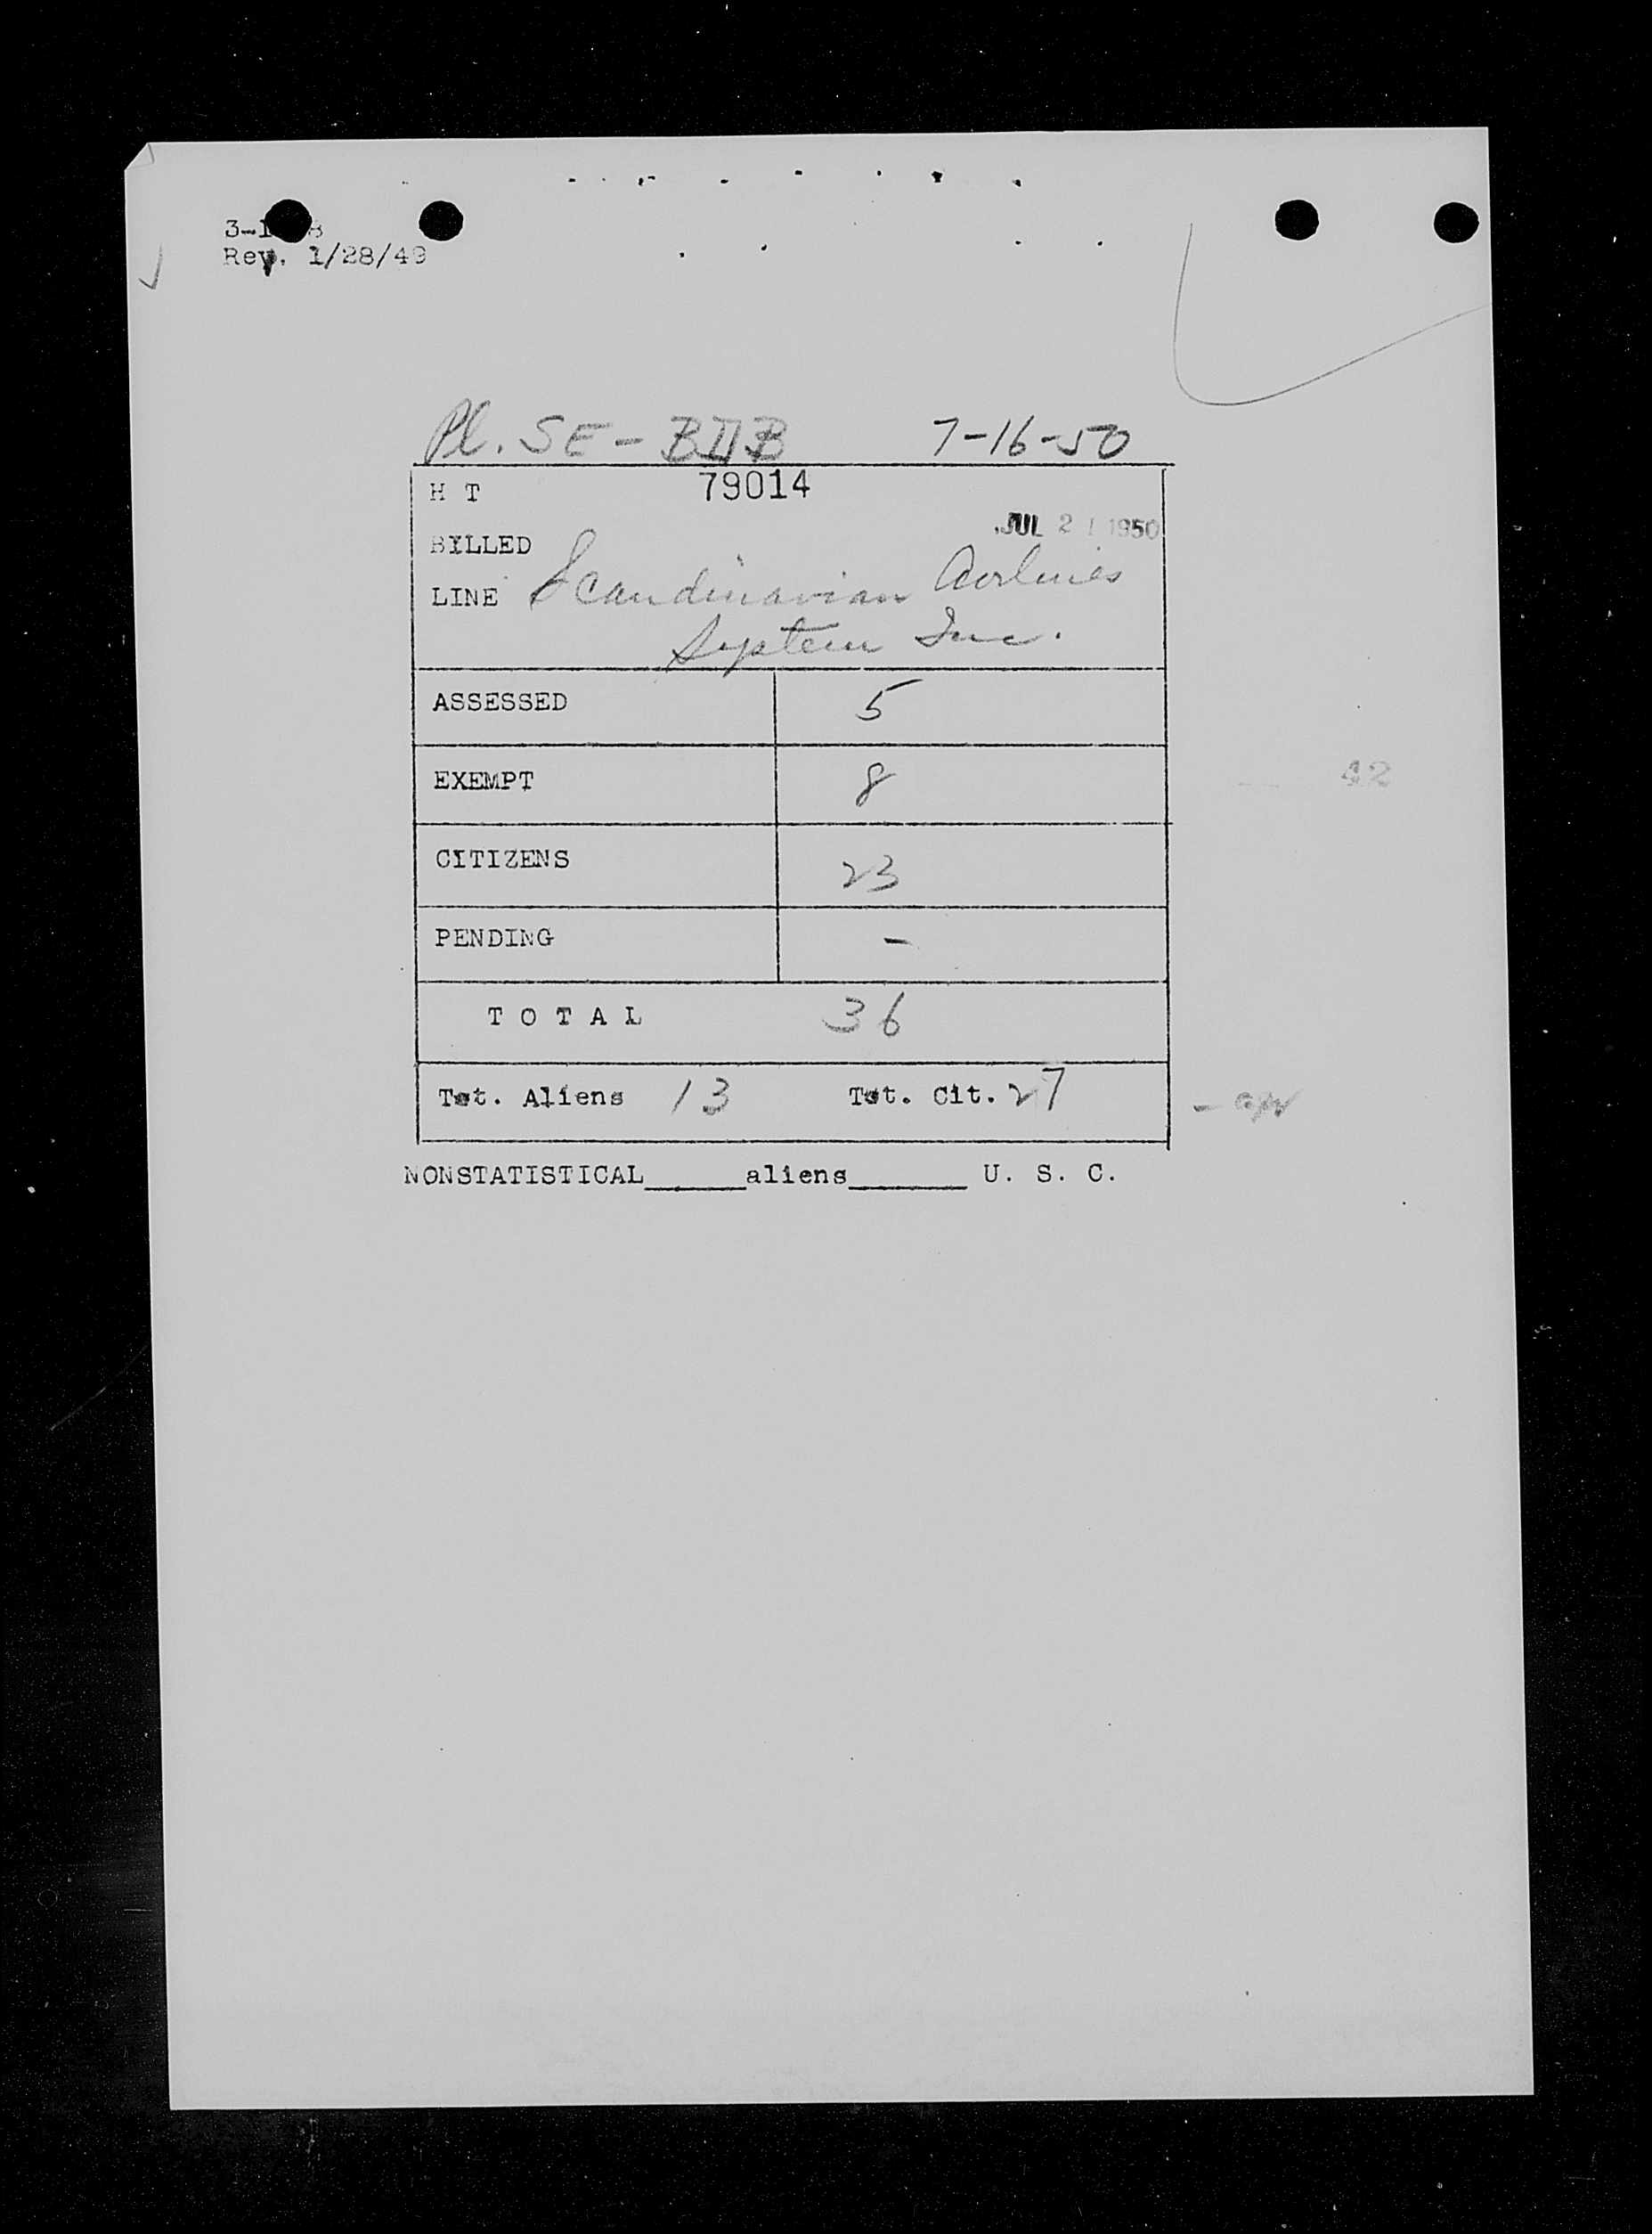 Rev. 1/28/49
Pl. SE-BDB 7-16-50
H T 79014
JUL 2 1 1950
BILLED
LINE Scandinavian Airlines
System Inc.
ASSESSED 5
EXEMPT 8
42
CITIZENS 23
PENDING -
TOTAL 36
Tot. Aliens 13 Tot. Cit. 27
NONSTATISTICAL______aliens_______ U. S. C.